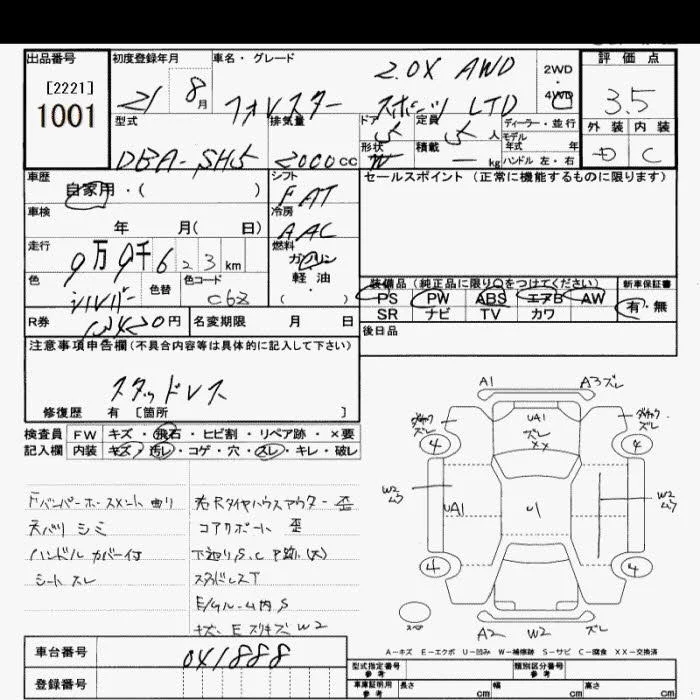 出品番号 初度登録年月 車名・グレード 評価点
[2221]
1001
21 8月 フォレスター 2.0X AWD
スポーツ LTD
2WD
・
4WD
3.5
外装 内装
D C
型式 排気量 ドア 定員 ディーラー・並行
DBA-SH5 2000cc 5 5人
モデル
年式 年
形状 積載
W ー kg ハンドル 左・右
車歴 シフト セールスポイント(正常に機能するものに限ります)
自家用・( ) FAT
車検 冷房
年 月( 日) AAC
走行 燃料
9万 9千 6 2 3 km ガソリン
軽・油
( )
色 色替 色コード
シルバー C6Z
装備品(純正品に限り○をつけてください) 新車保証書
PS PW ABS エアB AW 有・無
SR ナビ TV カワ
R券 円 名変期限 月 日 後日品
注意事項申告欄(不具合内容等は具体的に記入して下さい)
スタッドレス
修復歴 有 [箇所 ]
検査員 FW キズ・飛石・ヒビ割・リペア跡・×要
記入欄 内装 キズ・汚レ・コゲ・穴・スレ・キレ・破レ
Fバンパーホースメント曲リ
天バリ シミ
ハンドル カバー付
シート スレ
右Rタイヤハウスアウター歪
コアサポート 歪
下廻りS.C P跡(大)
スタッドレスT
E/gルーム内 S
キズ・Eスリキズ W2
A1 A3 ズレ
UA1
ズレ
XX
4 4
W2 UA1 U1 W2
4 4
スペア
A2 W2 ズレ
A-キズ E-エクボ U-凹み W-補修跡 S-サビ C-腐食 XX-交換済
車台番号 041888
登録番号
型式指定番号
参考
類別区分番号
参考
車庫証明用
参考
長さ cm 幅 cm 高さ cm